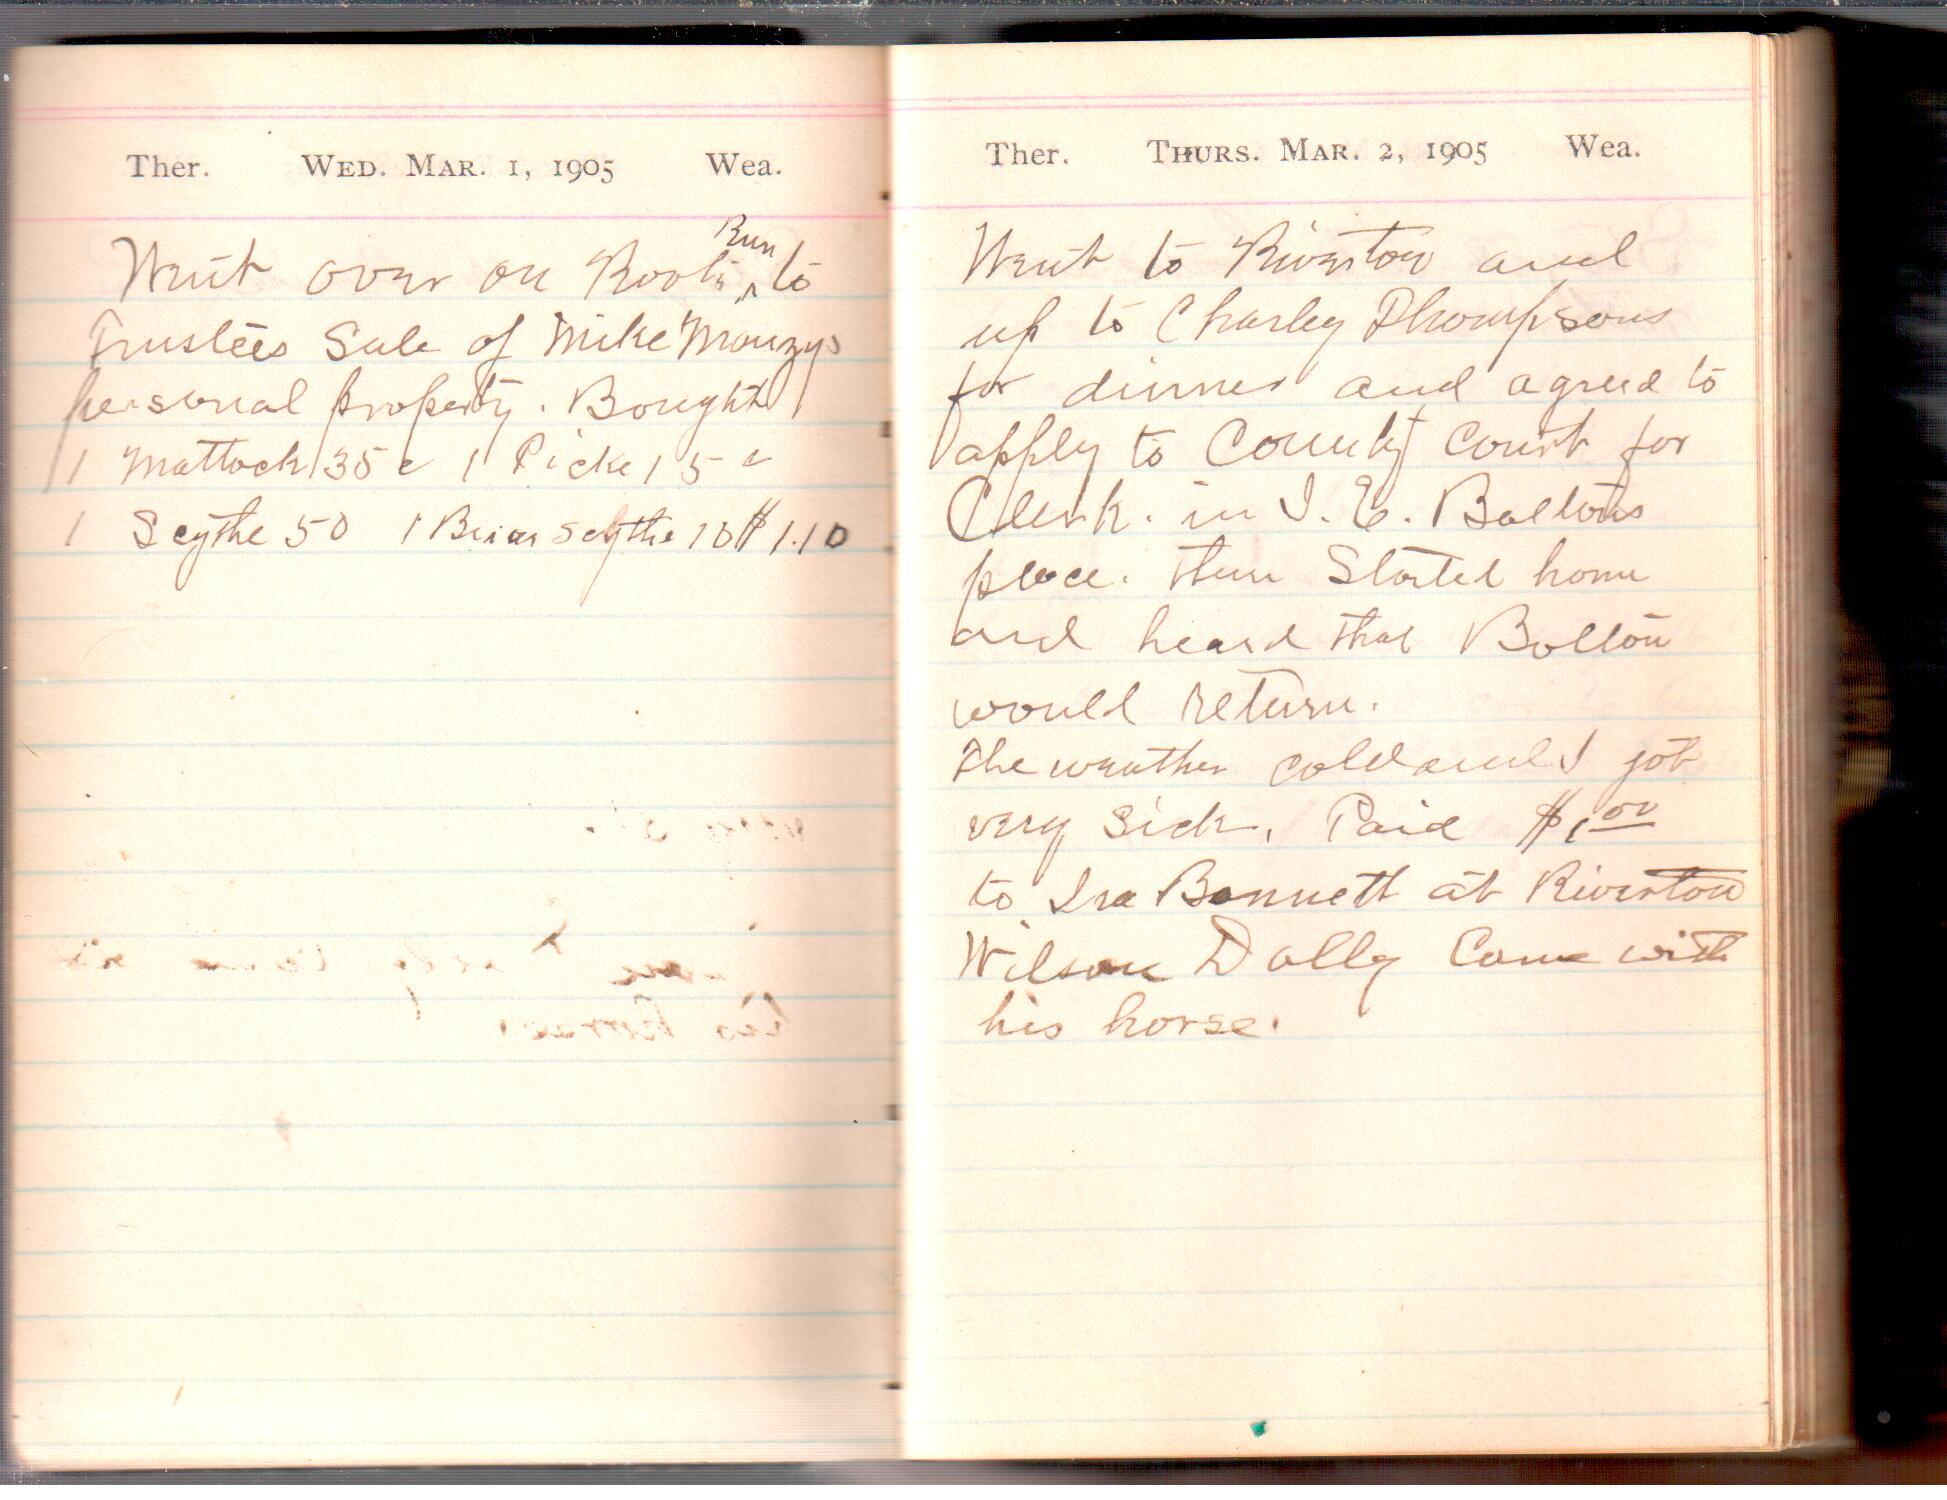 Ther. WED. MAR. 1, 1905 Wea.
Went over on Roots Run to
Trustees Sale of Mike Mouzys
personal property. Bought
1 Mattock 35 c 1 Picke 15 c
1 Scythe 50 1 Briar Scythe 10 $1.10
Ther. THURS. MAR. 2, 1905 Wea.
Went to Riverton and
up to Charley Thompsons
for dinner and agreed to
apply to County Court for
Clerk. in I. E. Boltons
place. then Started home
and heard that Bolton
would return.
The weather cold and I got
very sick. Paid $1.00
to Ira Bennett at Riverton
Wilson Dolly Came with
his horse.